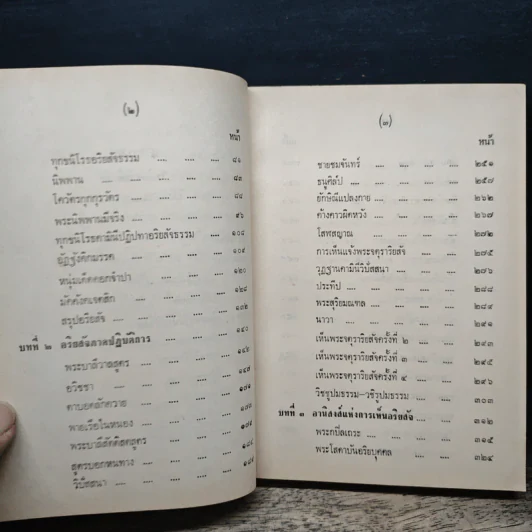 (๒)
หน้า
ทุกขนิโรธอริยสัจธรรม .... .... .... ๘๑
นิพพาน .... .... .... ๘๓
โควัตรกุกกุรวัตร .... .... .... ๘๘
พระนิพพานมีจริง .... .... .... ๙๖
ทุกขนิโรธคามินีปฏิปทาอริยสัจธรรม .... .... ๑๐๘
อัฏฐังคิกมรรค .... .... .... ๑๑๐
หนุ่มเด็ดดอกจำปา .... .... ๑๒๐
มัคคังคเจตสิก .... .... .... ๑๒๘
สรุปอริยสัจ .... .... .... ๑๓๒
บทที่ ๒ อริยสัจภาคปฏิบัติการ .... .... ๑๔๐
พระบาลีวาสสูตร .... .... ....
อวิชชา .... .... .... ....
ตาบอดลักควาย .... .... ....
พายเรือในหนอง .... .... ....
พระบาลีสัตติสตสูตร .... ....
สูตรบอกหนทาง .... ....
วิปัสสนา .... .... ....
(๓)
หน้า
ชายชมจันทร์ .... .... .... ๒๕๑
ธนูศิลป์ .... .... .... ๒๕๗
ยักษิณีแปลงกาย .... .... .... ๒๖๒
ค้างคาวผิดหวัง .... .... .... ๒๖๗
โสฬสญาณ .... .... .... ๒๗๒
การเห็นแจ้งพระจตุราริยสัจ .... .... ๒๗๕
วุฏฐานคามินีวิปัสสนา .... .... ๒๗๖
ประทีป .... .... .... ๒๘๔
พระสุริยมณฑล .... .... .... ๒๘๙
นาวา .... .... .... .... ๒๙๑
เห็นพระจตุราริยสัจครั้งที่ ๒ .... .... ๒๙๓
เห็นพระจตุราริยสัจครั้งที่ ๓ .... .... ๒๙๕
เห็นพระจตุราริยสัจครั้งที่ ๔ .... .... ๒๙๖
วิชชูปมธรรม–วชิรูปมธรรม .... .... ๓๐๓
บทที่ ๓ อานิสงส์แห่งการเห็นอริยสัจ .... .... ๓๑๒
พระกบิลเถระ .... .... .... ๓๑๕
พระโสดาบันอริยบุคคล .... .... ๓๒๔